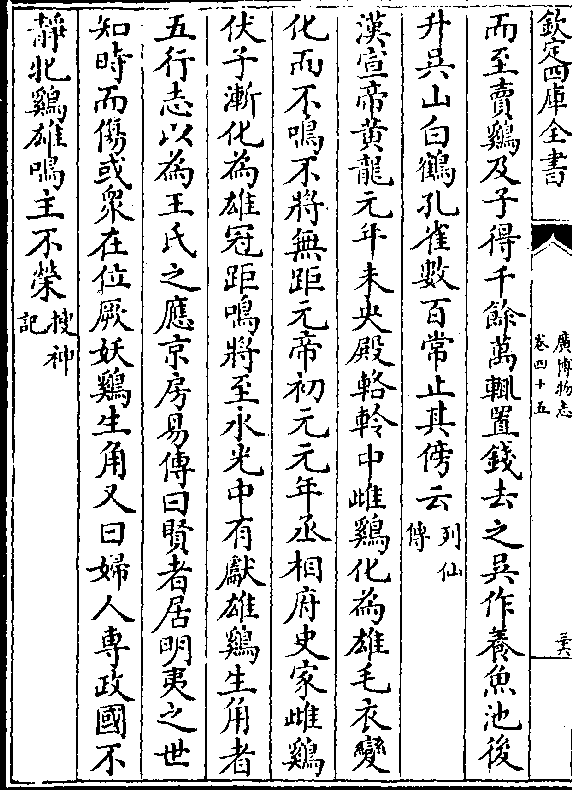 欽定四庫全書
廣博物志
卷四十五
而至賣鷄及子得千餘萬輒置錢去之吳作養魚池後
升吳山白鶴孔雀數百常止其傍云列仙
傳
漢宣帝黃龍元年未央殿輅軨中雌鷄化為雄毛衣變
化而不鳴不將無距元帝初元元年丞相府史家雌鷄
伏子漸化為雄冠距鳴將至永光中有獻雄鷄生角者
五行志以為王氏之應京房易傳曰賢者居明夷之世
知時而傷或衆在位厥妖鷄生角又曰婦人専政國不
靜牝鷄雄鳴主不榮搜神
記